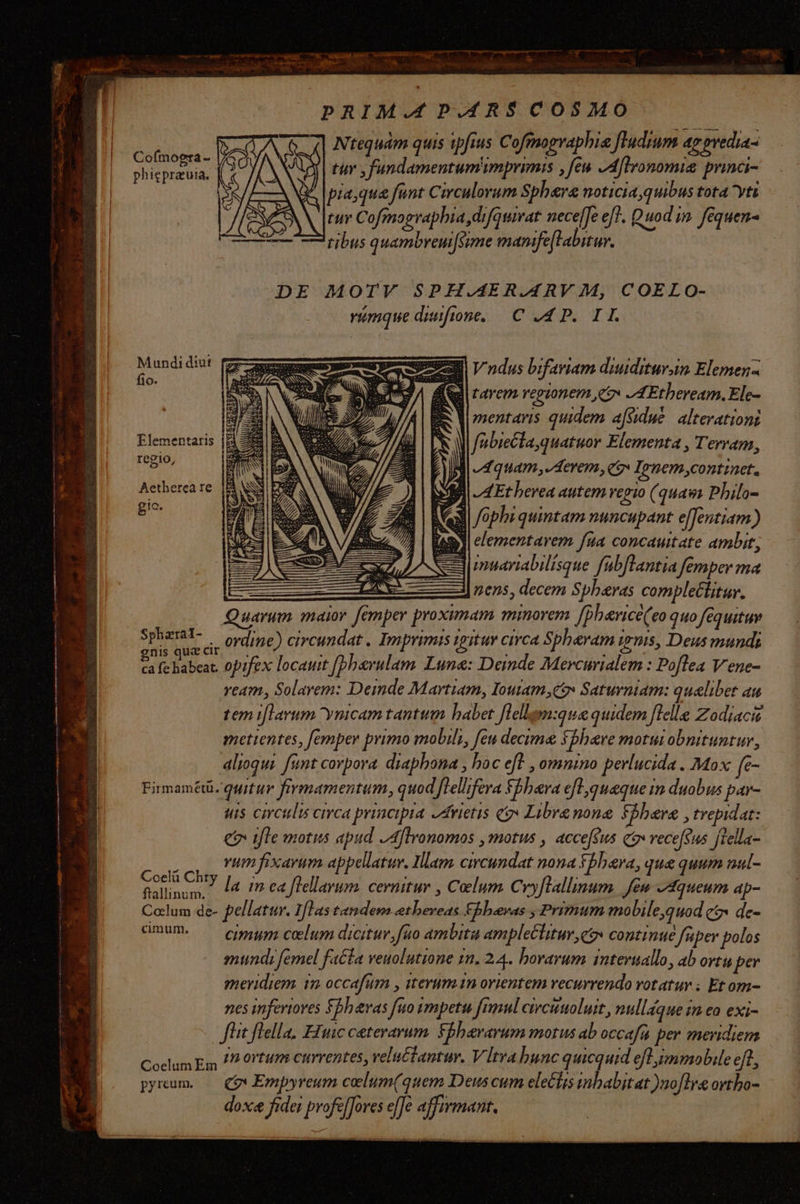 PRIMA PARS COSMO
Cosmogra-
phiæ præuia.
ANtequàm quis ipsius Cosmographiæ studium aggredia-
tur, fundamentum imprimis, seu Astronomiæ princi-
pia, quæ sunt Circulorum Sphæræ noticia, quibus tota vti
tur Cosmographia, disquirat necesse est. Quod in sequen-
tibus quambreuissime manifestabitur.
DE MOTV SPHAERARVM, COELO-
rúmque diuisione. CAP. II.
Mundi diui
sio.
MVndus bifariam diuiditur, in Elemen-
tarem regionem, & AEtheream. Ele-
mentaris quidem assiduè alterationi
Elementaris
regio,
subiecta, quatuor Elementa, Terram,
Aquam, Aerem, & Ignem, continet.
Aetherea re
gio.
AEtherea autem regio (quam Philo-
sophi quintam nuncupant essentiam)
elementarem sua concauitate ambit,
inuariabilisque substantia semper ma
nens, decem Sphæras complectitur.
Quarum maior semper proximam minorem sphæricè (eo quo sequitur
Sphæra I-
gnis quæ cir
ca se habeat.
ordine) circundat. Imprimis igitur circa Sphæram ignis, Deus mundi
opifex locauit sphærulam Lunæ: Deinde Mercurialem: Postea Vene-
ream, Solarem: Deinde Martiam, Iouiam, & Saturniam: quælibet au
tem istarum vnicam tantum habet stellam: quæ quidem stellæ Zodiacũ
metientes, semper primo mobili, seu decimæ sphæræ motui obnituntur,
alioqui sunt corpora diaphona, hoc est, omnino perlucida. Mox se-
Firmamẽtũ.
quitur firmamentum, quod stellifera sphæra est, quæque in duobus par-
uis circulis circa principia Arietis & Libræ nonæ sphæræ, trepidat:
& iste motus apud Astronomos, motus, accessus & recessus stella-
rum fixarum appellatur. Illam circundat nona sphæra, quæ quum nul-
Coelũ Chry
stallinum.
la in ea stellarum cernitur, Cœlum Crystallinum seu Aqueum ap-
Cœlum de-
cimum.
pellatur. Istas tandem æthereas sphæras, Primum mobile, quod & de-
cimum cœlum dicitur, suo ambitu amplectitur, & continuè super polos
mundi semel facta reuolutione in. 24. horarum interuallo, ab ortu per
meridiem in occasum, iterum in orientem recurrendo rotatur: Et om-
nes inferiores sphæras suo impetu simul circũuoluit, nulláque in eo exi-
stit stella. Huic cæterarum sphærarum motus ab occasu per meridiem
Coelum Em
pyreum.
in ortum currentes, reluctantur. Vltra hunc quicquid est, immobile est,
& Empyreum cœlum (quem Deus cum electis inhabitat) nostræ ortho-
doxæ fidei professores esse affirmant.